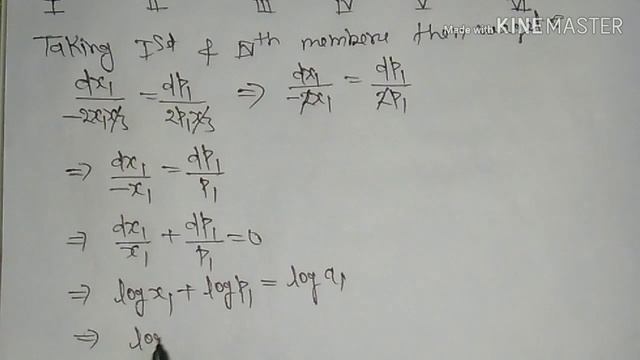 I II III IV V VI
Made with KINEMASTER
Taking Ist & IVth members then
dx₁/-2x₁x₃ = dp₁/2p₁x₃ ⇒ dx₁/-2x₁ = dp₁/2p₁
⇒ dx₁/-x₁ = dp₁/p₁
⇒ dx₁/x₁ + dp₁/p₁ = 0
⇒ log x₁ + log p₁ = log a₁
⇒ log